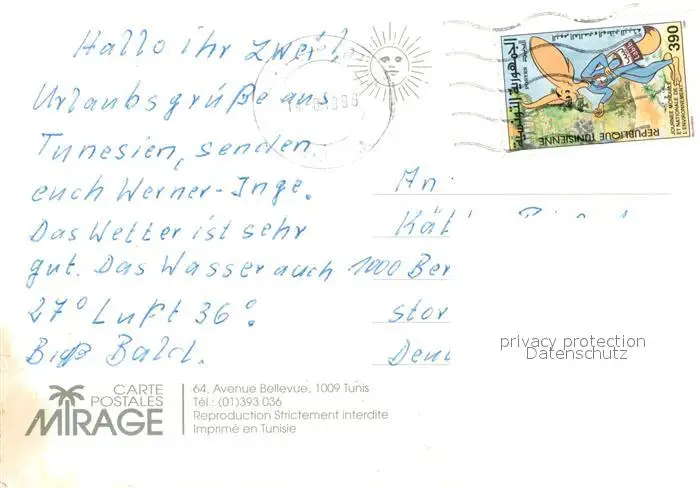 Hallo ihr zwei!
Urlaubsgrüße aus
Tunesien, senden
euch Werner-Inge.
Das Wetter ist sehr
gut. Das Wasser auch
27° Luft 36°.
Biß Bald.
An
Kät
1000 Ber
stor
Den
390
REPUBLIQUE TUNISIENNE
JOURNEE MONDIALE
ET NATIONALE DE
L'ENVIRONNEMENT
الجمهورية التونسية
privacy protection
Datenschutz
CARTE
POSTALES
MIRAGE
64, Avenue Bellevue, 1009 Tunis
Tél.: (01)393 036
Reproduction Strictement interdite
Imprimé en Tunisie